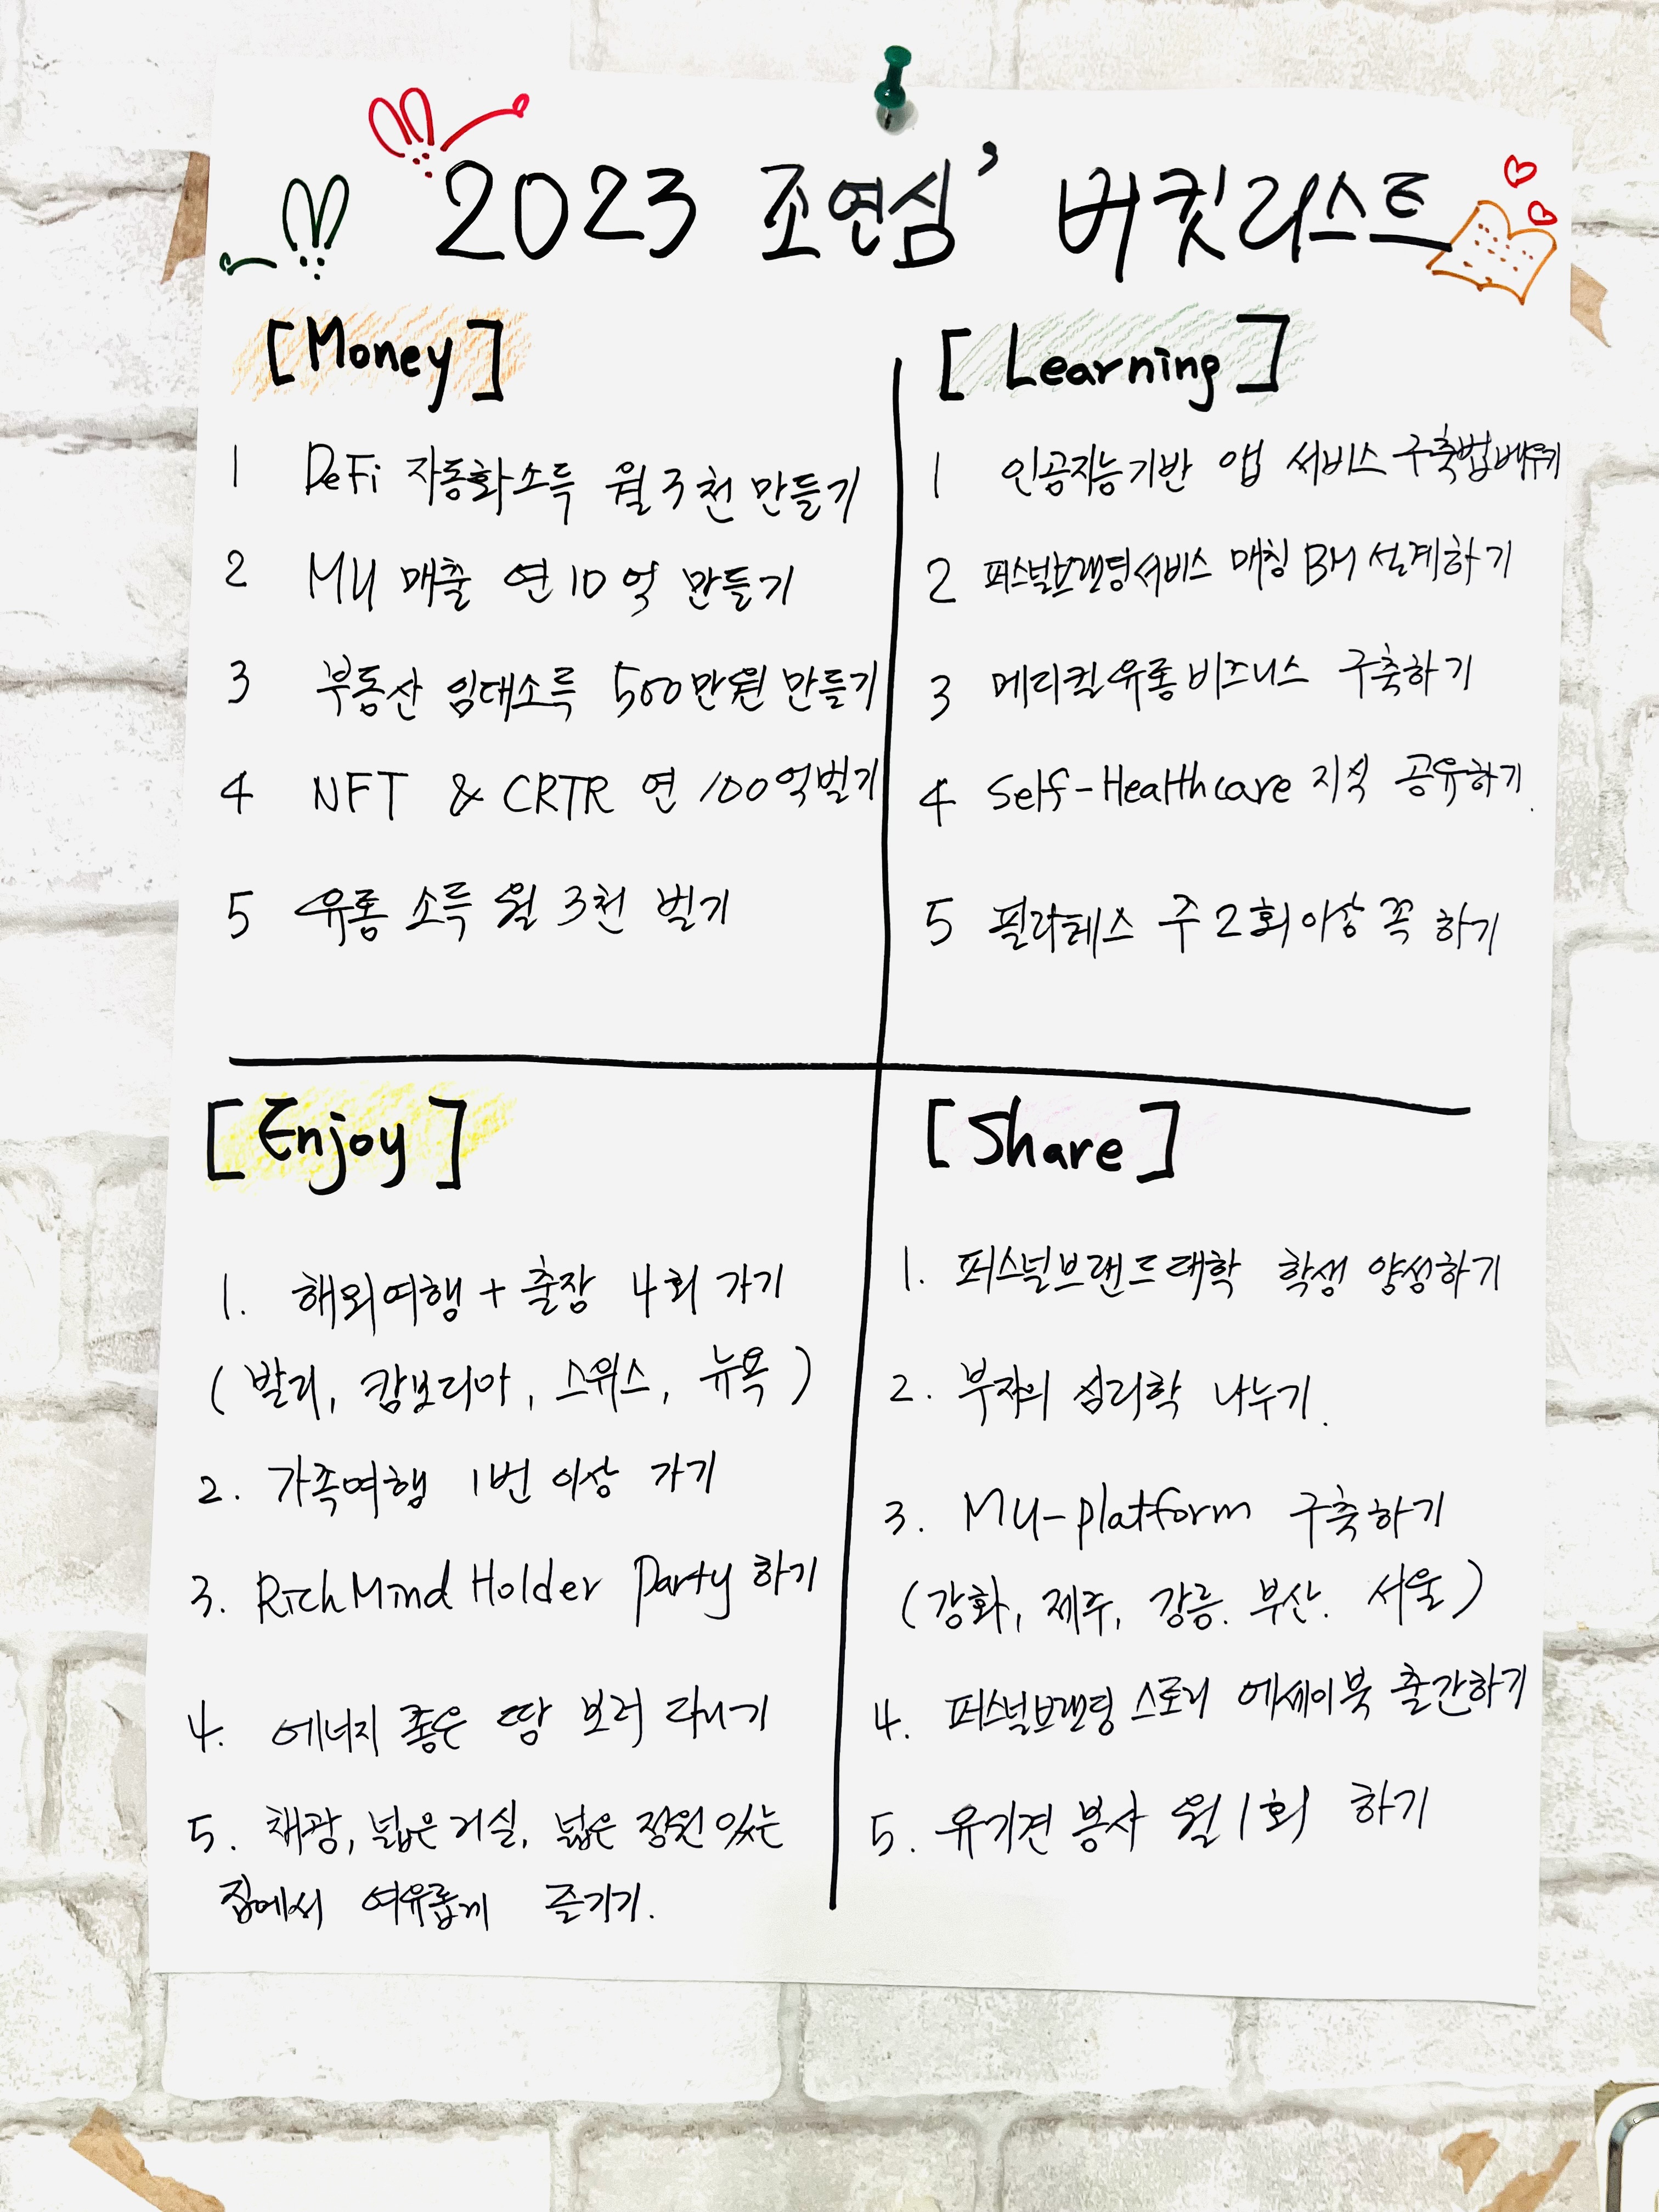 2023 조연심' 버킷리스트
[Money]
1 DeFi 자동화소득 월 3천 만들기
2 MU 매출 연 10억 만들기
3 부동산 임대소득 500만원 만들기
4 NFT & CRTR 연 100억벌기
5 유통 소득 월 3천 벌기
[Learning]
1 인공지능기반 앱 서비스 구축법배우기
2 퍼스널브랜딩서비스 매칭 BM 설계하기
3 메디컬유통비즈니스 구축하기
4 Self-Healthcare 지식 공유하기.
5 필라테스 주 2회이상 꼭 하기
[Enjoy]
1. 해외여행 + 출장 4회 가기
(발리, 캄보디아, 스위스, 뉴욕)
2. 가족여행 1번 이상 가기
3. RichMind Holder Party 하기
4. 에너지 좋은 땅 보러 다니기
5. 채광, 넓은 거실, 넓은 정원 있는
집에서 여유롭게 즐기기.
[Share]
1. 퍼스널브랜드대학 학생 양성하기
2. 부자의 심리학 나누기.
3. MU-platform 구축하기
(강화, 제주, 강릉. 부산. 서울)
4. 퍼스널브랜딩 스토리 에세이북 출간하기
5. 유기견 봉사 월 1회 하기